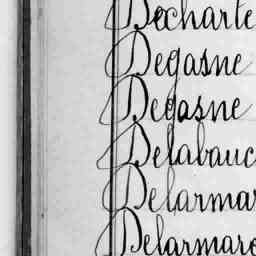 Decharte
Degasne
Degasne
Delabauc
Delarmar
Delarmaro